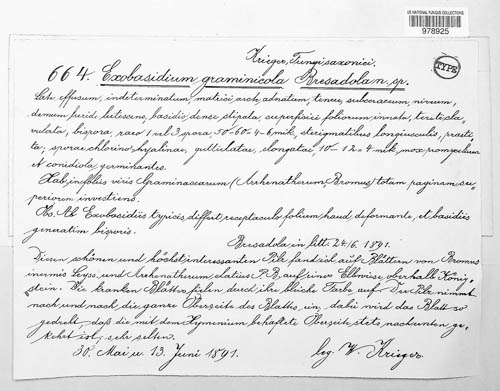 US NATIONAL FUNGUS COLLECTIONS
978925
Krieger, Fungi saxonici.
TYPE
664. Exobasidium graminicola Bresadola n. sp.
Late effusum, indeterminatum, matrici arcte adnatum, tenue, subceraceum, niveum,
demum purid. lutescens, basidiis dense stipatis, superficiei foliorum innatis, tereti-cla-
vulatis, bisporis, raro 1 vel 3 sporis, 50-60 = 4-6 mik, sterigmatibus longiusculis, praedi-
tis; sporae chlorino-hyalinae, guttulatae, elongatae, 10-12 = 4 mik, mox promycelium
et conidiola germinantes.
Hab. in foliis vivis Graminacearum (Arrhenatherum, Bromus) totam paginam su-
periorem investiens.
Obs. Ab Exobasidiis typicis differt receptaculo folium haud deformante, et basidiis
generatim bisporis.
Bresadola in litt. 24/6. 1891.
Diesen schönen und höchst interessanten Pilz fand ich auf Blättern von Bromus
inermis Leyss. und Arrhenatherum elatius P. B. auf einer Elbwiese oberhalb König-
stein. Die kranken Blätter fielen durch ihre bleiche Farbe auf. Der Pilz nimmt
nach und nach die ganze Oberseite des Blatts ein, dabei wird das Blatt so
gedreht, daß die mit dem Hymenium behaftete Oberseite stets nach unten ge-
kehrt ist; sehr selten.
30. Mai u. 13. Juni 1891. leg. W. Krieger.